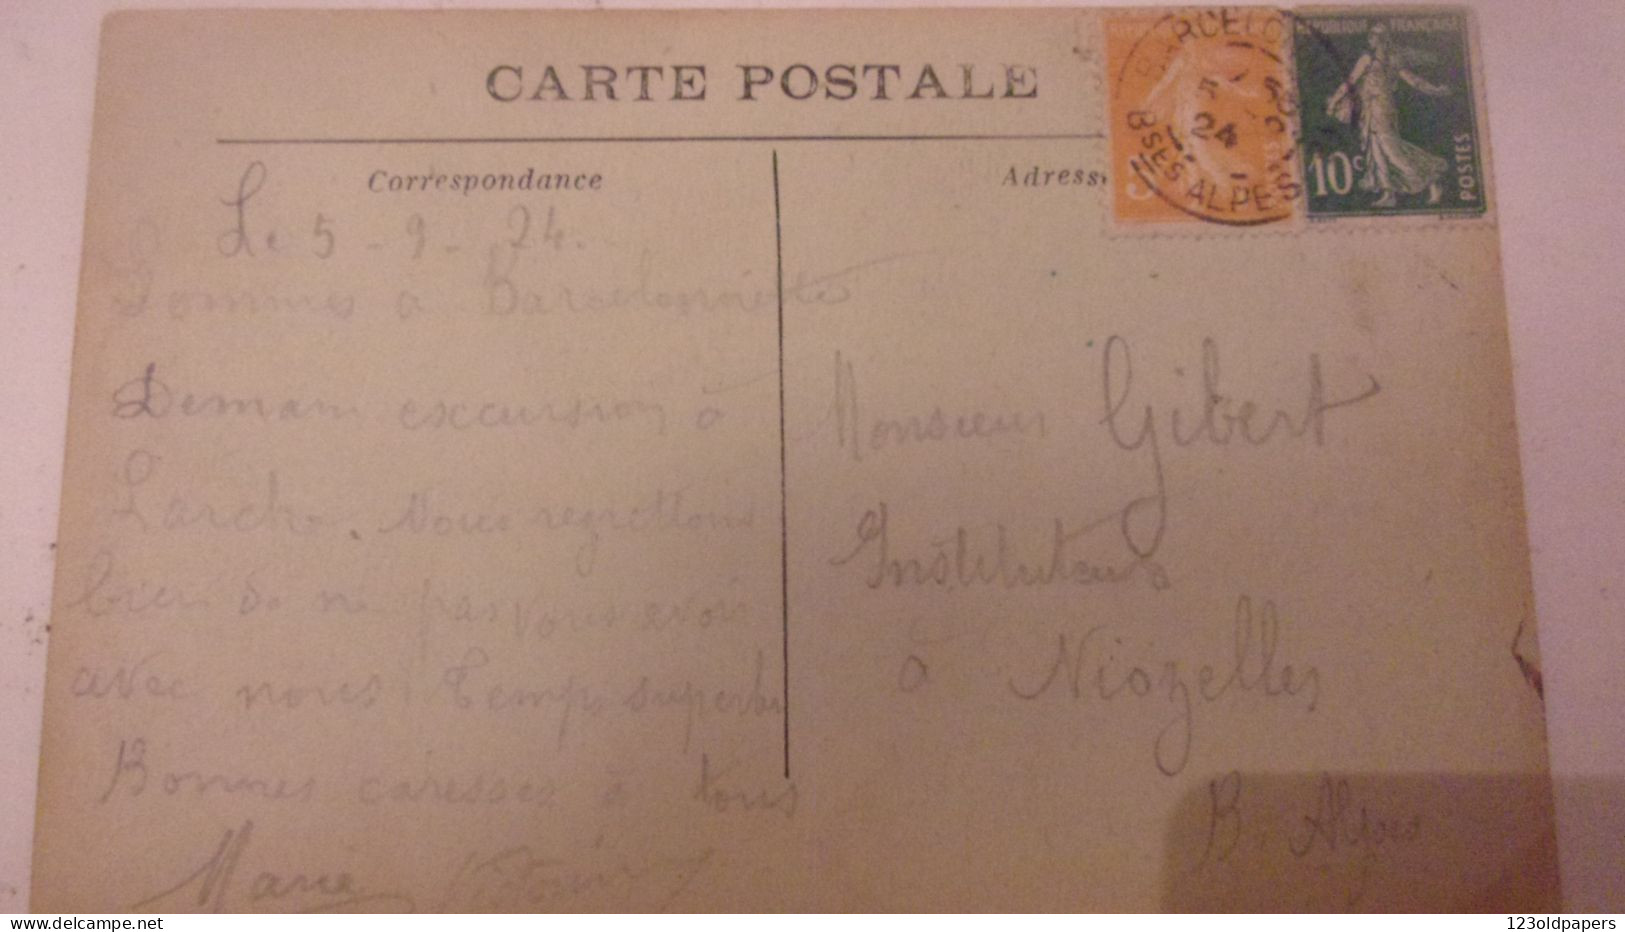 CARTE POSTALE
Correspondance
Adress
RÉPUBLIQUE FRANÇAISE
10c
POSTES
BARCELO
5
24
Bses ALPES
Le 5 - 9 - 24.
Sommes à Barcelonnette
Demain excursion à
Larche. Nous regrettons
bien de ne pas vous avoir
avec nous Temps superbe
Bonnes caresses à tous
Marie
Monsieur Gibert
Instituteur
à Niozelles
B. Alpes
123oldpapers